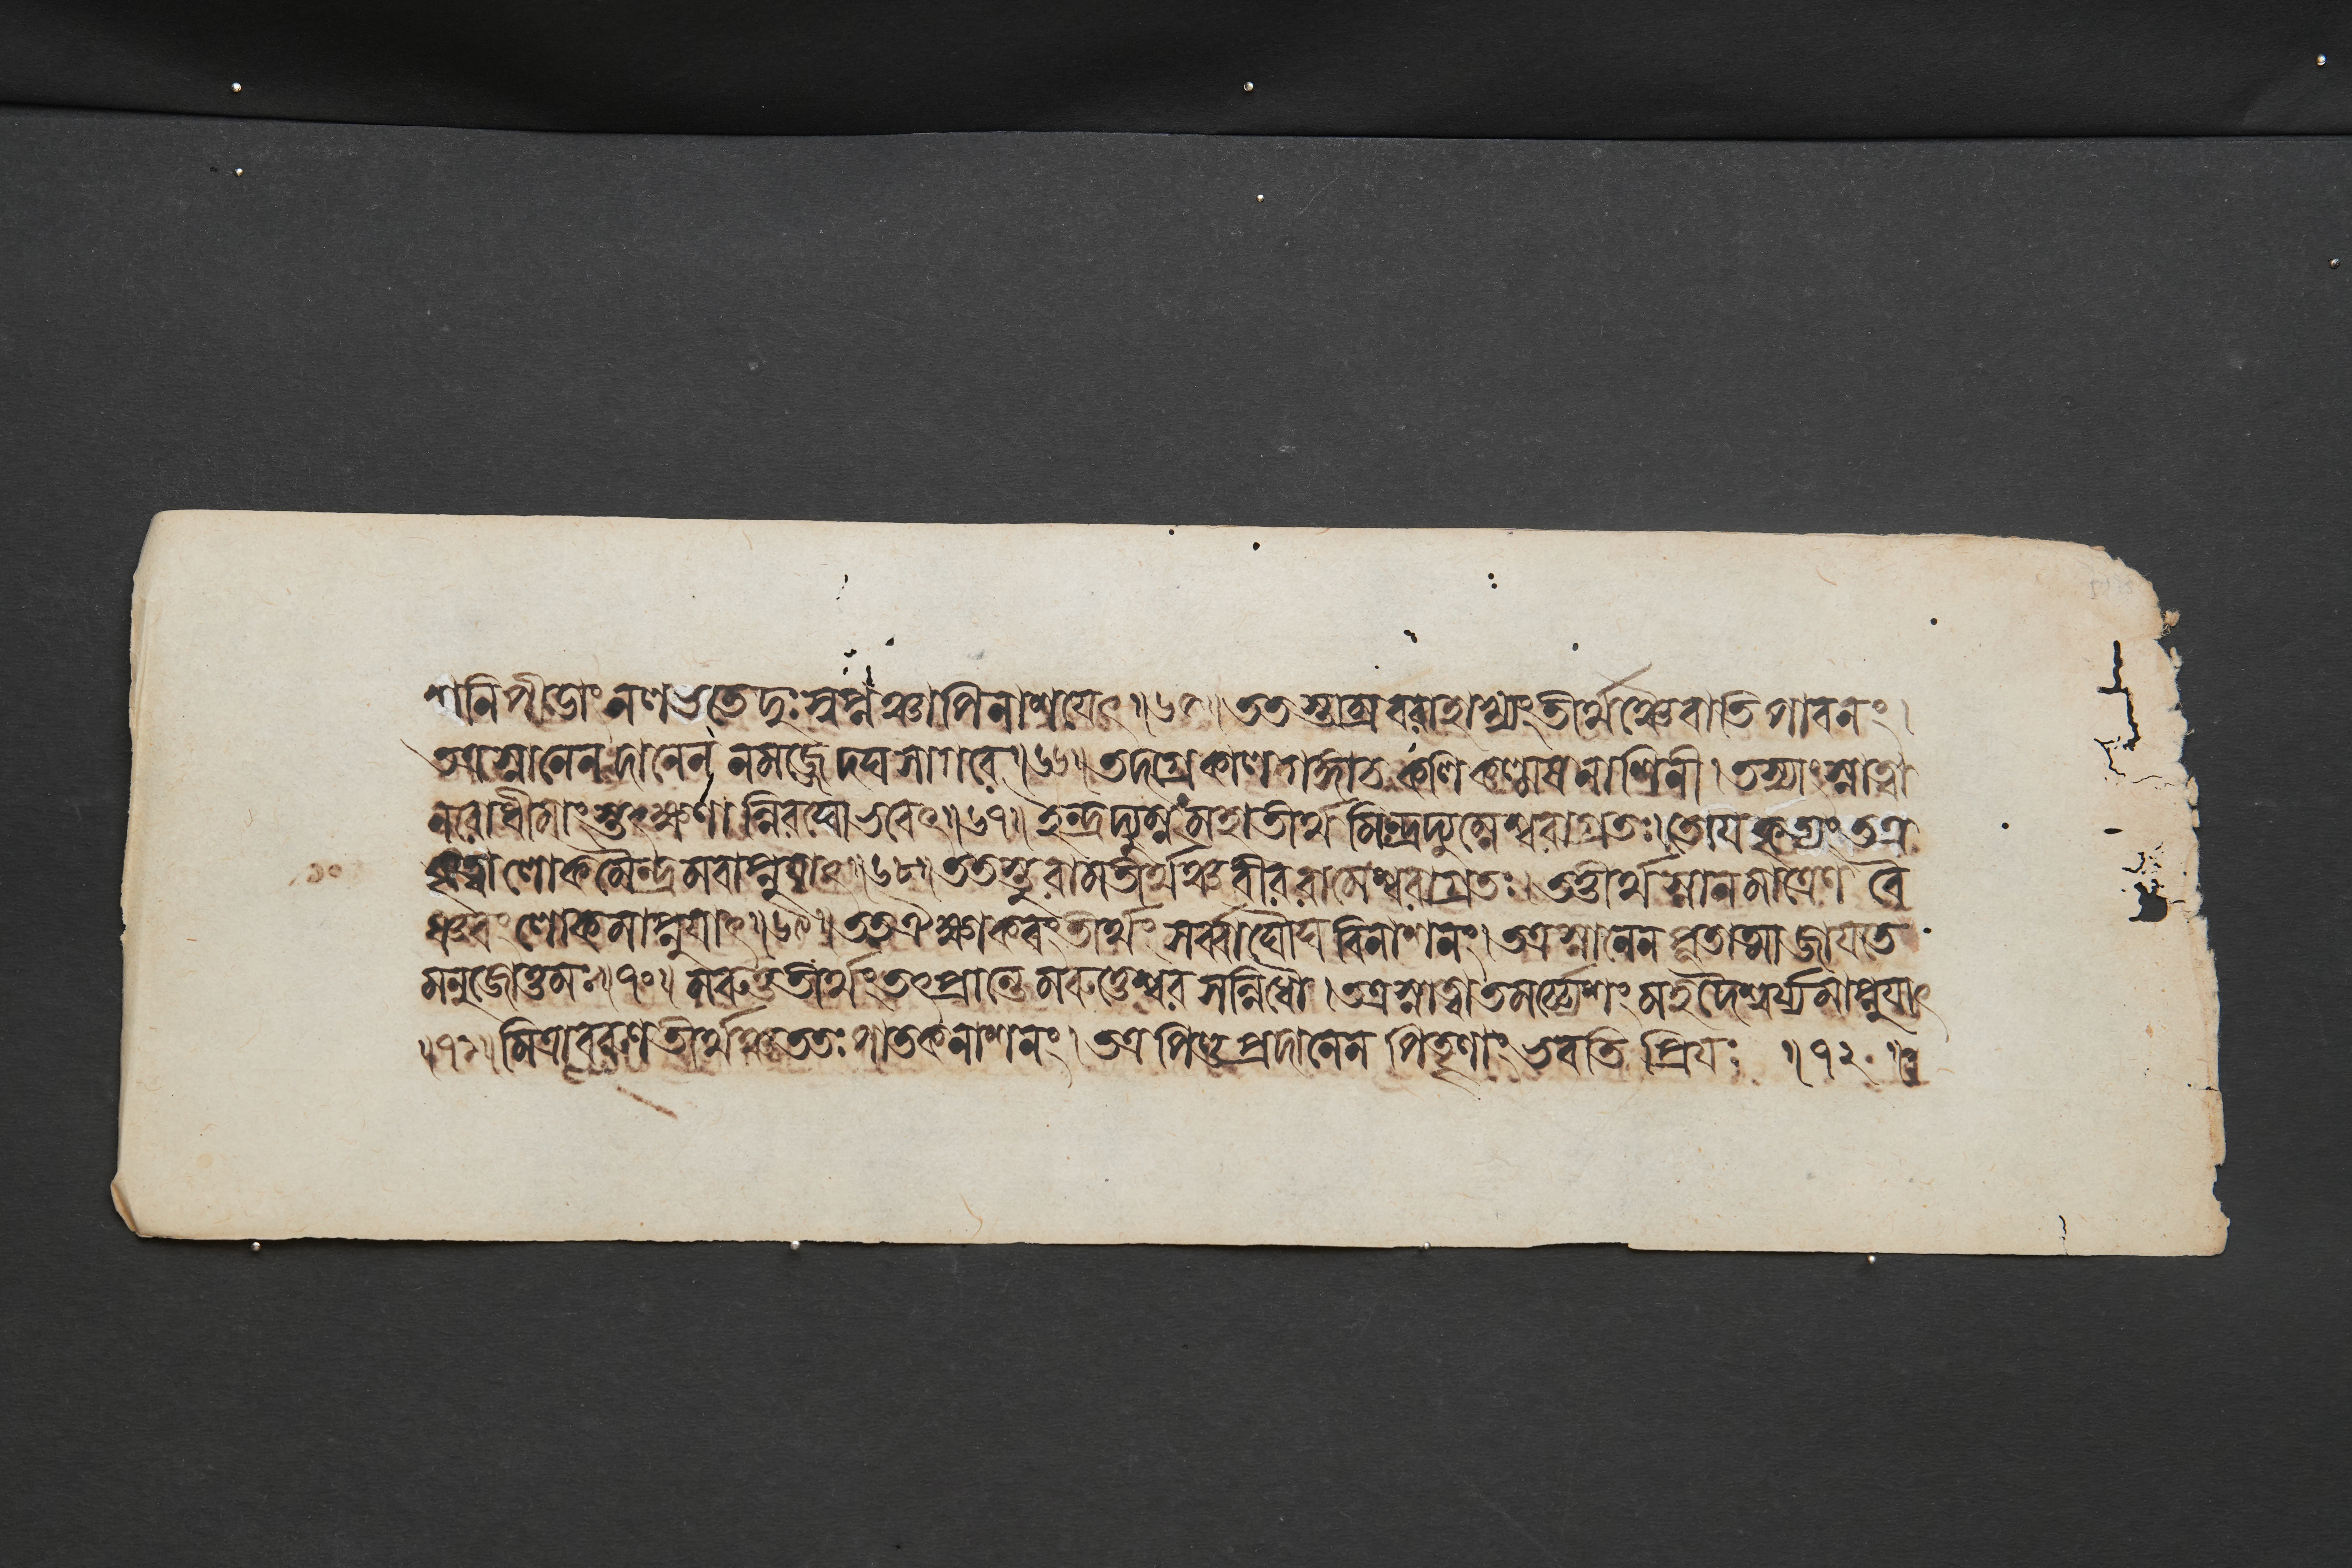 শনিপীডাং নলভতে দুঃস্বপ্নঞ্চাপিনাশযেৎ॥৬৫॥ততস্তাম্রবরাহাখ্যংতীর্থঞ্চৈবাতিপাবনং।
অত্রস্নানেন দানেন নমজ্জেদঘসাগরে॥৬৬॥তদগ্রেকালগঙ্গাচ কণিকল্মষনাশিনী।তস্যাংস্নাত্বা
নরোধীমাংস্তৎক্ষণান্নিরঘোভবেৎ॥৬৭॥ইন্দ্রদ্যুম্নংমহাতীর্থমিন্দ্রদ্যুম্নেশ্বরাগ্রতঃ।তোযকৃত্যংতত্র
কৃত্বালোকমৈন্দ্রমবাপ্নুযাৎ॥৬৮॥ততস্তুরামতীর্থঞ্চবীররামেশ্বরাগ্রতঃ।তত্তীর্থস্নানমাত্রেণ বৈ
ষ্ণবংলোকমাপ্নুযাৎ॥৬৯॥ততঐক্ষ্বাকবংতীর্থং সর্ব্বাঘৌঘবিনাশনং।তত্রস্নানেন পূতাত্মাজাযতে
মনুজোত্তমঃ॥৭০॥মরুত্ততীর্থংতৎপ্রান্তে মরুত্তেশ্বরসন্নিধৌ।তত্রস্নাত্বাতমর্চ্চ্যেশংমহদৈশ্বর্য্যমাপ্নুযাৎ
॥৭১॥মিত্রাবরুণতীর্থঞ্চ ততঃপাতকনাশনং।তত্রপিণ্ডপ্রদানেন পিতৄণাংভবতি প্রিযঃ ॥৭২॥